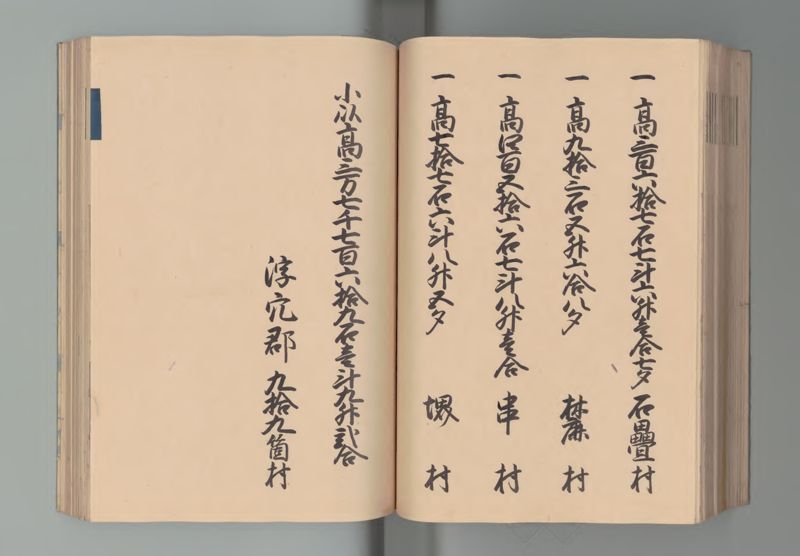 一 高三百六拾七石七斗六升壱合七夕 石疊村
一 高九拾三石五升六合八夕 麻村
一 高四百五拾六石七斗八升壱合 串村
一 高七拾七石六斗八升五夕 堺村
小以高三万七千七百六拾九石壱斗九升弐合
浮穴郡 九拾九箇村